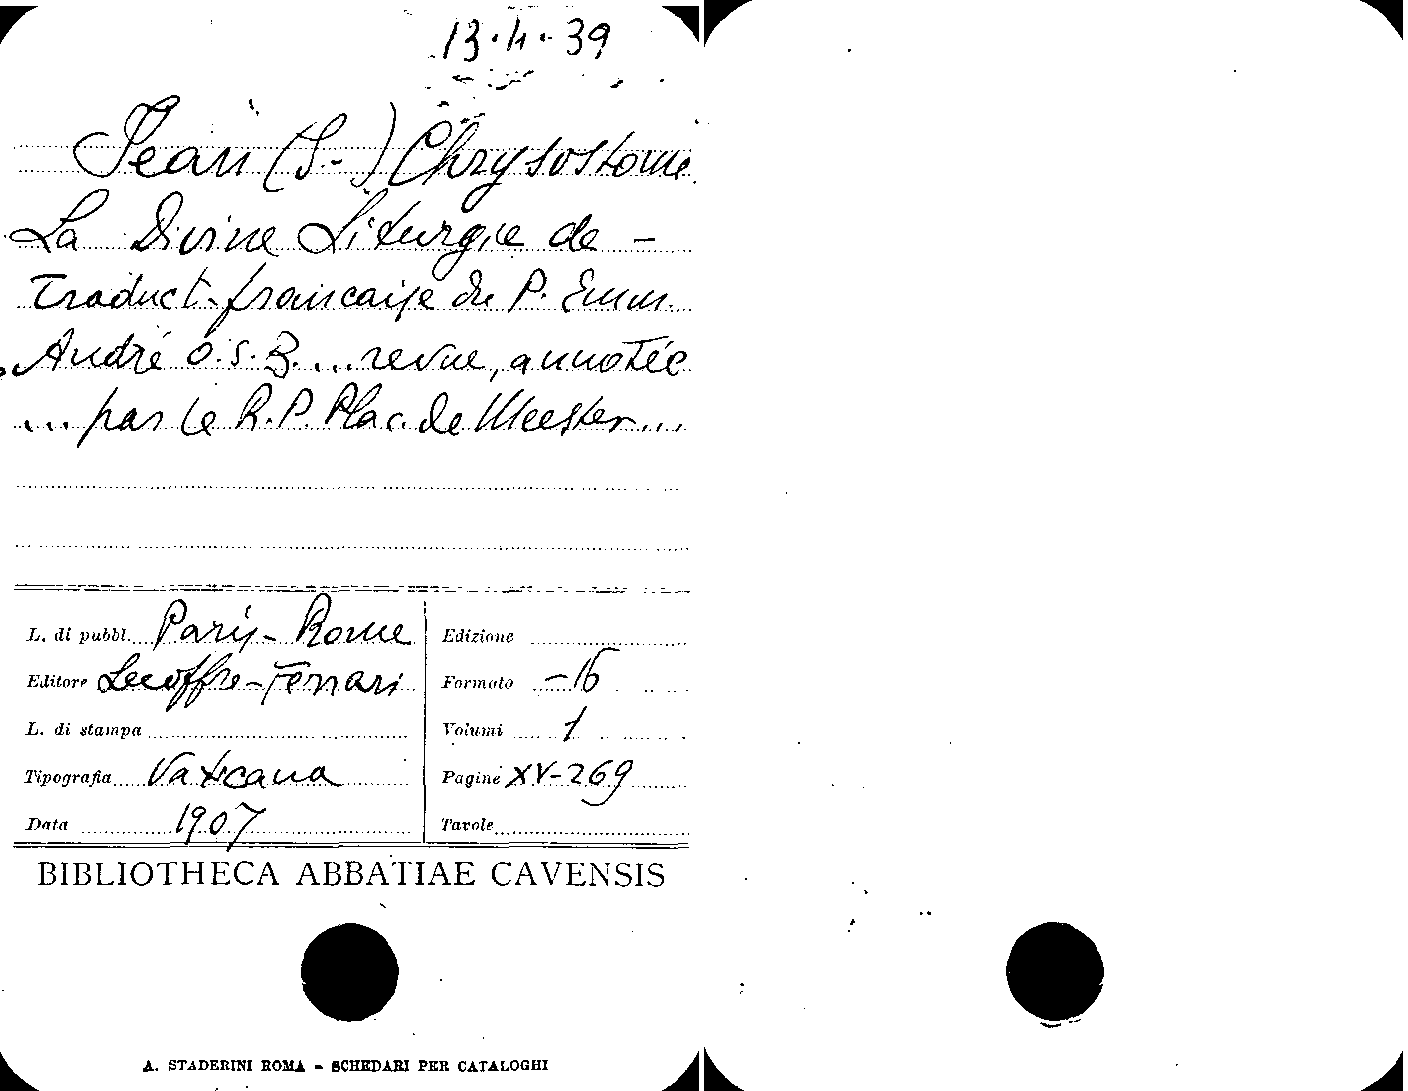 13.4.39
Jean (S-) Chrysostome
La Divine Liturgie de -
Traduct. francaise du P. Emm.
André O.S.B. ... revue, annotée
... par le R.P. Plac. de Meester ...
L. di pubbl. Paris - Rome
Editore Lecoffre - Ferrari
L. di stampa
Tipografia Vaticana
Data 1907
Edizione
Formato -16
Volumi 1
Pagine XV-269
Tavole
BIBLIOTHECA ABBATIAE CAVENSIS
A. STADERINI ROMA - SCHEDARI PER CATALOGHI